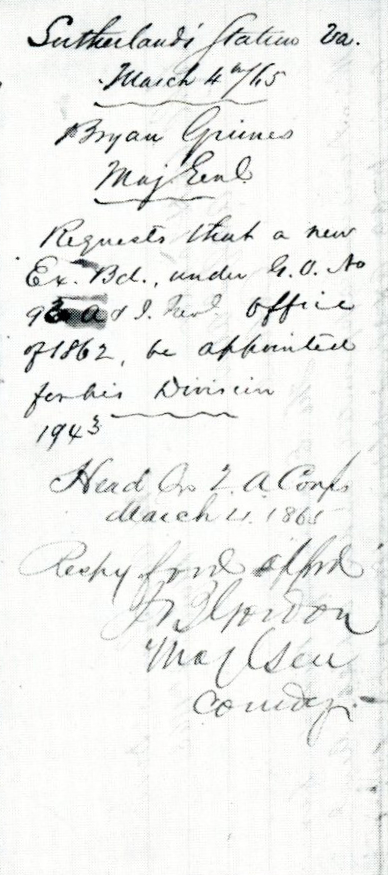 Sutherland's Station Va.
March 4th/65
Bryan Grimes
Maj. Genl.
Requests that a new
Ex. Bd., under G.O. No
93 A & I. Genl. Office
of 1862, be appointed
for his Division
1943
Head Qrs 2. A Corps
March 11. 1865
Respy forwd apprd
J B Gordon
Maj Gen
Comdg.